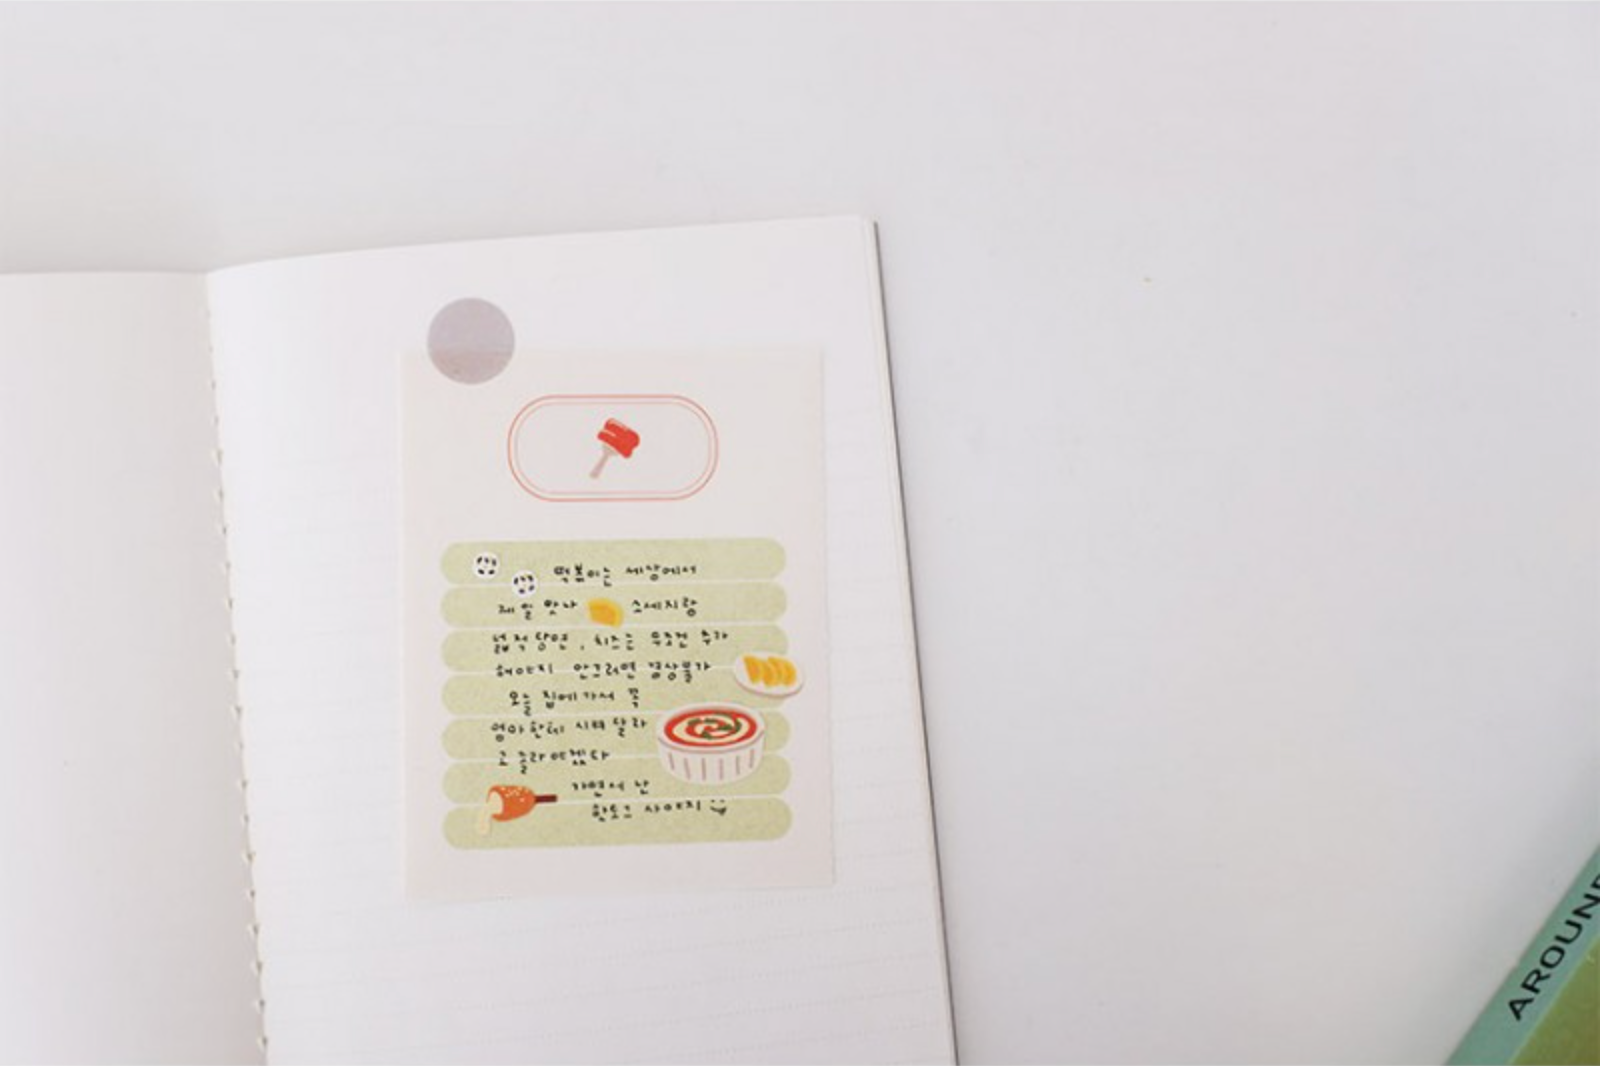 떡볶이는 세상에서
제일 맛나 소세지랑
넓적당면, 치즈는 무조건 추가
해야지 안그러면 경상불가
오늘 집에가서 꼭
엄마한테 시켜 달라
고 졸라야겠다
가면서 난
핫도그 사야지
AROUND